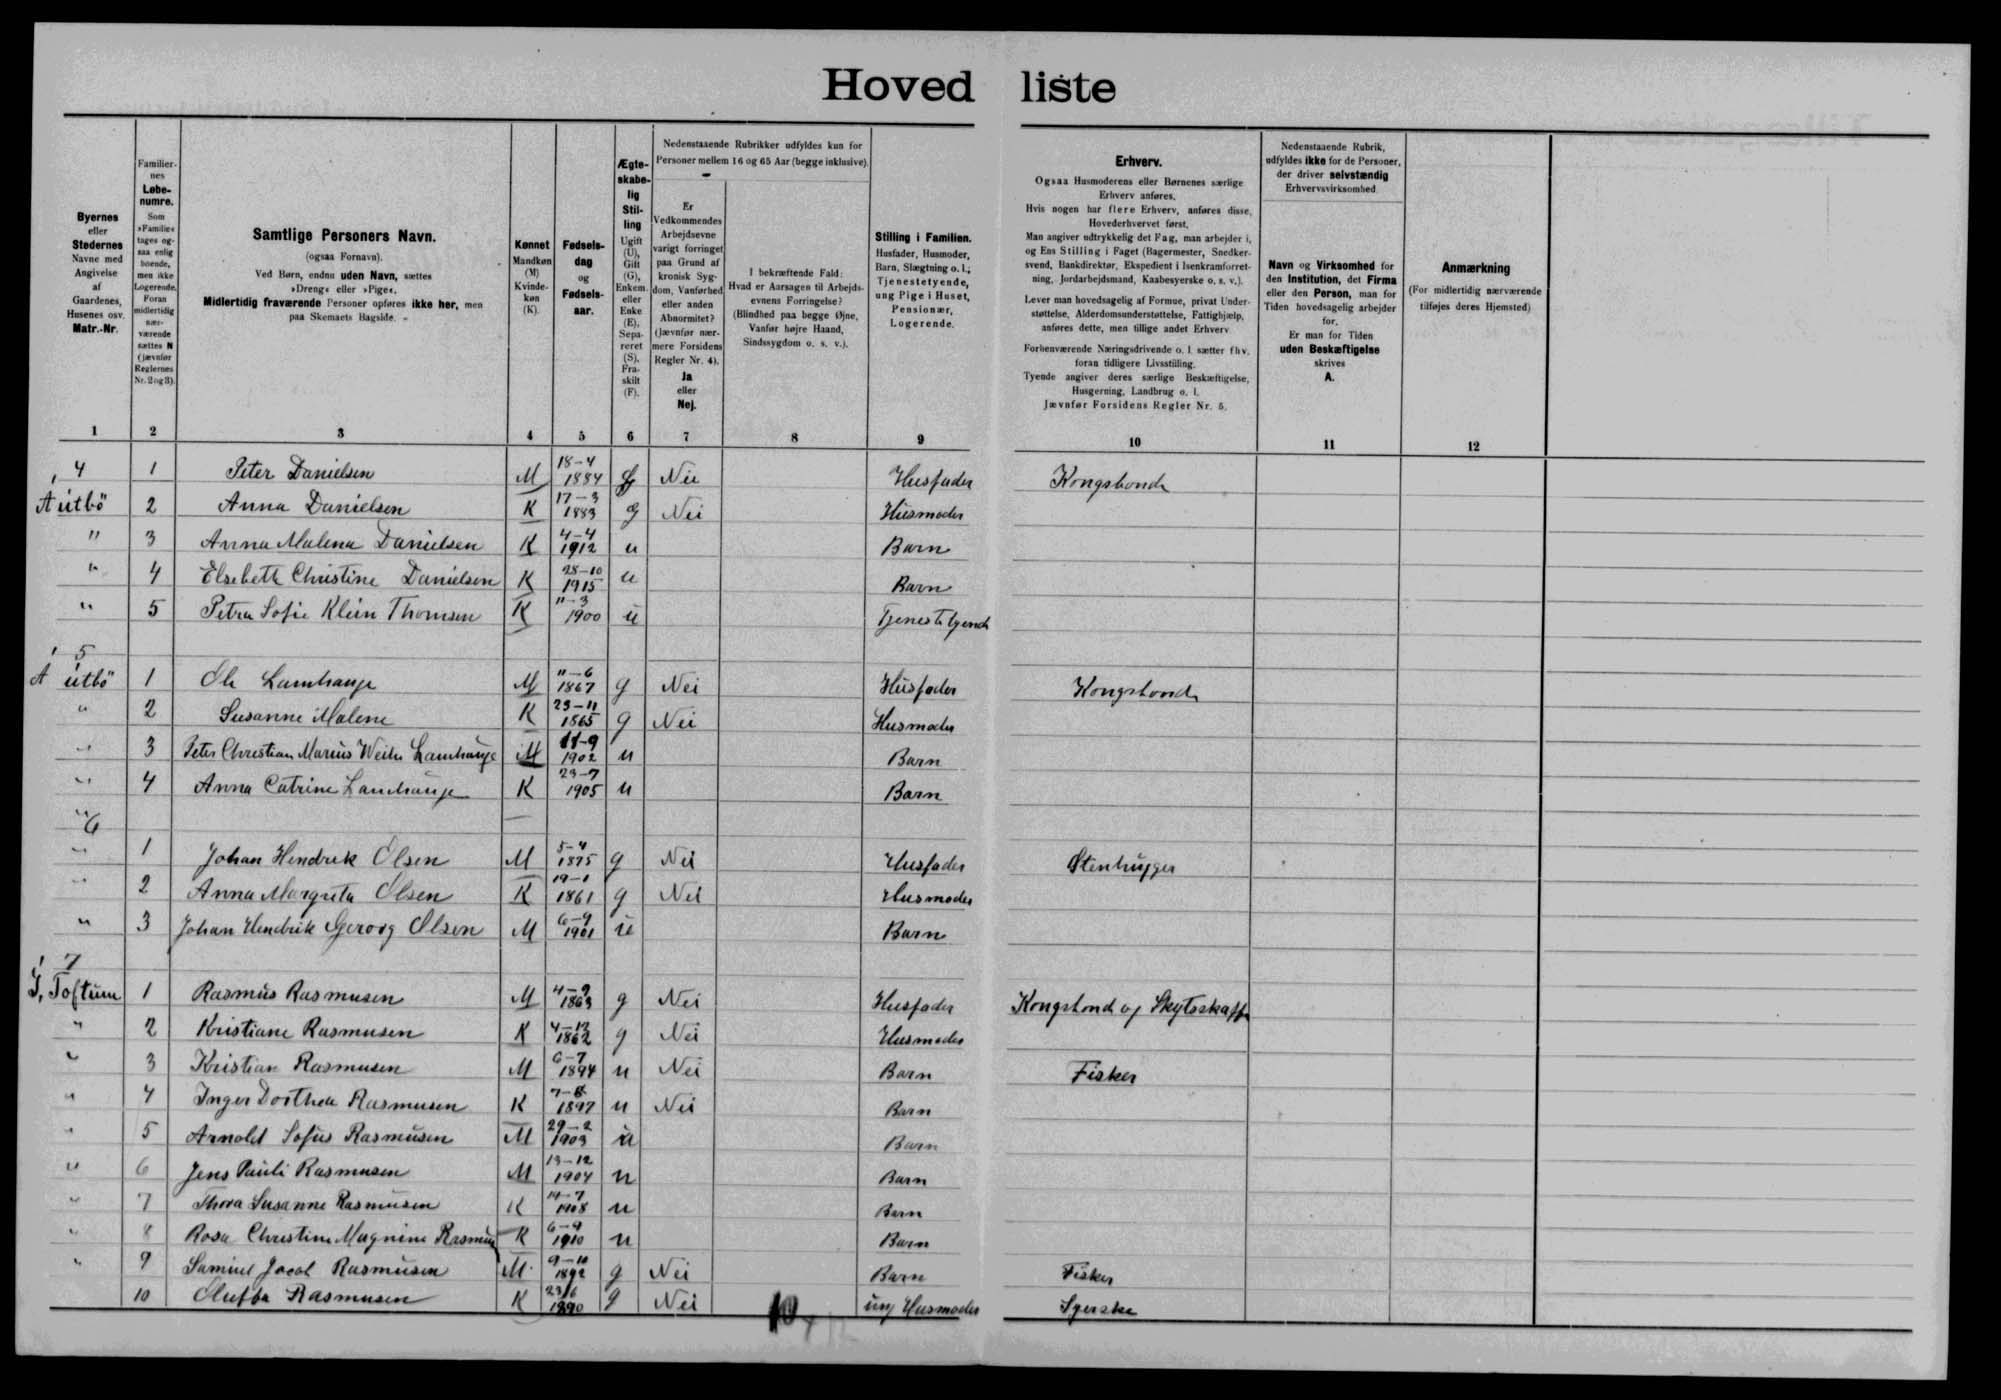 Hoved liste
Byernes eller Stedernes Navne med Angivelse af Gaardenes, Husenes osv. Matr.-Nr.
Familiernes Løbenumre. Som »Familie« tages ogsaa enlig boende, men ikke Logerende. Foran midlertidig nærværende sættes N (jævnfør Reglernes Nr. 2 og 3).
Samtlige Personers Navn. (ogsaa Fornavn). Ved Børn, endnu uden Navn, sættes »Dreng« eller »Pige«. Midlertidig fraværende Personer opføres ikke her, men paa Skemaets Bagside.
Kønnet Mandkøn (M) Kvindekøn (K).
Fødselsdag og Fødselsaar.
Ægteskabelig Stilling Ugift (U), Gift (G), Enkem. eller Enke (E), Separeret (S), Fraskilt (F).
Nedenstaaende Rubrikker udfyldes kun for Personer mellem 16 og 65 Aar (begge inklusive).
Er Vedkommendes Arbejdsevne varigt forringet paa Grund af kronisk Sygdom, Vanførhed eller anden Abnormitet? (Jævnfør nærmere Forsidens Regler Nr. 4). Ja eller Nej.
I bekræftende Fald: Hvad er Aarsagen til Arbejdsevnens Forringelse? (Blindhed paa begge Øjne, Vanfør højre Haand, Sindssygdom o. s. v.).
Stilling i Familien. Husfader, Husmoder, Barn, Slægtning o. l.; Tjenestetyende, ung Pige i Huset, Pensionær, Logerende.
Erhverv.
Ogsaa Husmoderens eller Børnenes særlige Erhverv anføres.
Hvis nogen har flere Erhverv, anføres disse, Hovederhvervet først.
Man angiver udtrykkelig det Fag, man arbejder i, og Ens Stilling i Faget (Bagermester, Snedkersvend, Bankdirektør, Ekspedient i Isenkramforretning, Jordarbejdsmand, Kaabesyerske o. s. v.).
Lever man hovedsagelig af Formue, privat Understøttelse, Alderdomsunderstøttelse, Fattighjælp, anføres dette, men tillige andet Erhverv
Forhenværende Næringsdrivende o. l. sætter fhv. foran tidligere Livsstilling.
Tyende angiver deres særlige Beskæftigelse, Husgerning, Landbrug o. l.
Jævnfør Forsidens Regler Nr. 5.
Nedenstaaende Rubrik, udfyldes ikke for de Personer, der driver selvstændig Erhvervsvirksomhed.
Navn og Virksomhed for den Institution, det Firma eller den Person, man for Tiden hovedsagelig arbejder for.
Er man for Tiden uden Beskæftigelse skrives A.
Anmærkning (For midlertidig nærværende tilføjes deres Hjemsted)
1 2 3 4 5 6 7 8 9 10 11 12
4 1 Peter Danielsen M 18-4 1884 g Nei Husfader Kongsbonde
A útbö 2 Anna Danielsen K 17-3 1883 g Nei Husmoder
" 3 Anna Malena Danielsen K 4-4 1912 u Barn
" 4 Elsebeth Christine Danielsen K 28-10 1915 u Barn
" 5 Petra Sofie Klein Thomsen K 11-3 1900 u Tjenestetyende
5
A útbö 1 Ole Lamhauge M 11-6 1867 g Nei Husfader Kongsbonde
" 2 Susanne Malene K 23-11 1865 g Nei Husmoder
" 3 Peter Christian Marius Lamhauge M 1902 u Barn
" 4 Anna Catrine Lamhauge K 23-7 1905 u Barn
6
" 1 Johan Hendrek Olsen M 5-4 1875 g Nei Husfader Stenhugger
" 2 Anna Margreta Olsen K 19-1 1861 g Nei Husmoder
" 3 Johan Hendrik Gerorg Olsen M 6-9 1901 u Barn
7
I, Toftum 1 Rasmus Rasmusen M 4-9 1863 g Nei Husfader Kongsbond og Skytsskaff
" 2 Kristiane Rasmusen K 4-12 1862 g Nei Husmoder
" 3 Kristian Rasmusen M 6-7 1894 u Nei Barn Fisker
" 4 Inger Dorthea Rasmusen K 1897 u Nei Barn
" 5 Arnold Sofus Rasmusen M 29-2 1903 u Barn
" 6 Jens Pauli Rasmusen M 13-12 1904 u Barn
" 7 Thora Susanne Rasmusen K 14-7 1908 u Barn
" 8 Rosa Christine Magnine Rasmus K 6-9 1910 u Barn
" 9 Samuel Jacob Rasmusen M 9-10 1892 g Nei Barn Fisker
10 Rasmusen K 23/6 1890 g Nei ung Husmoder Syerske